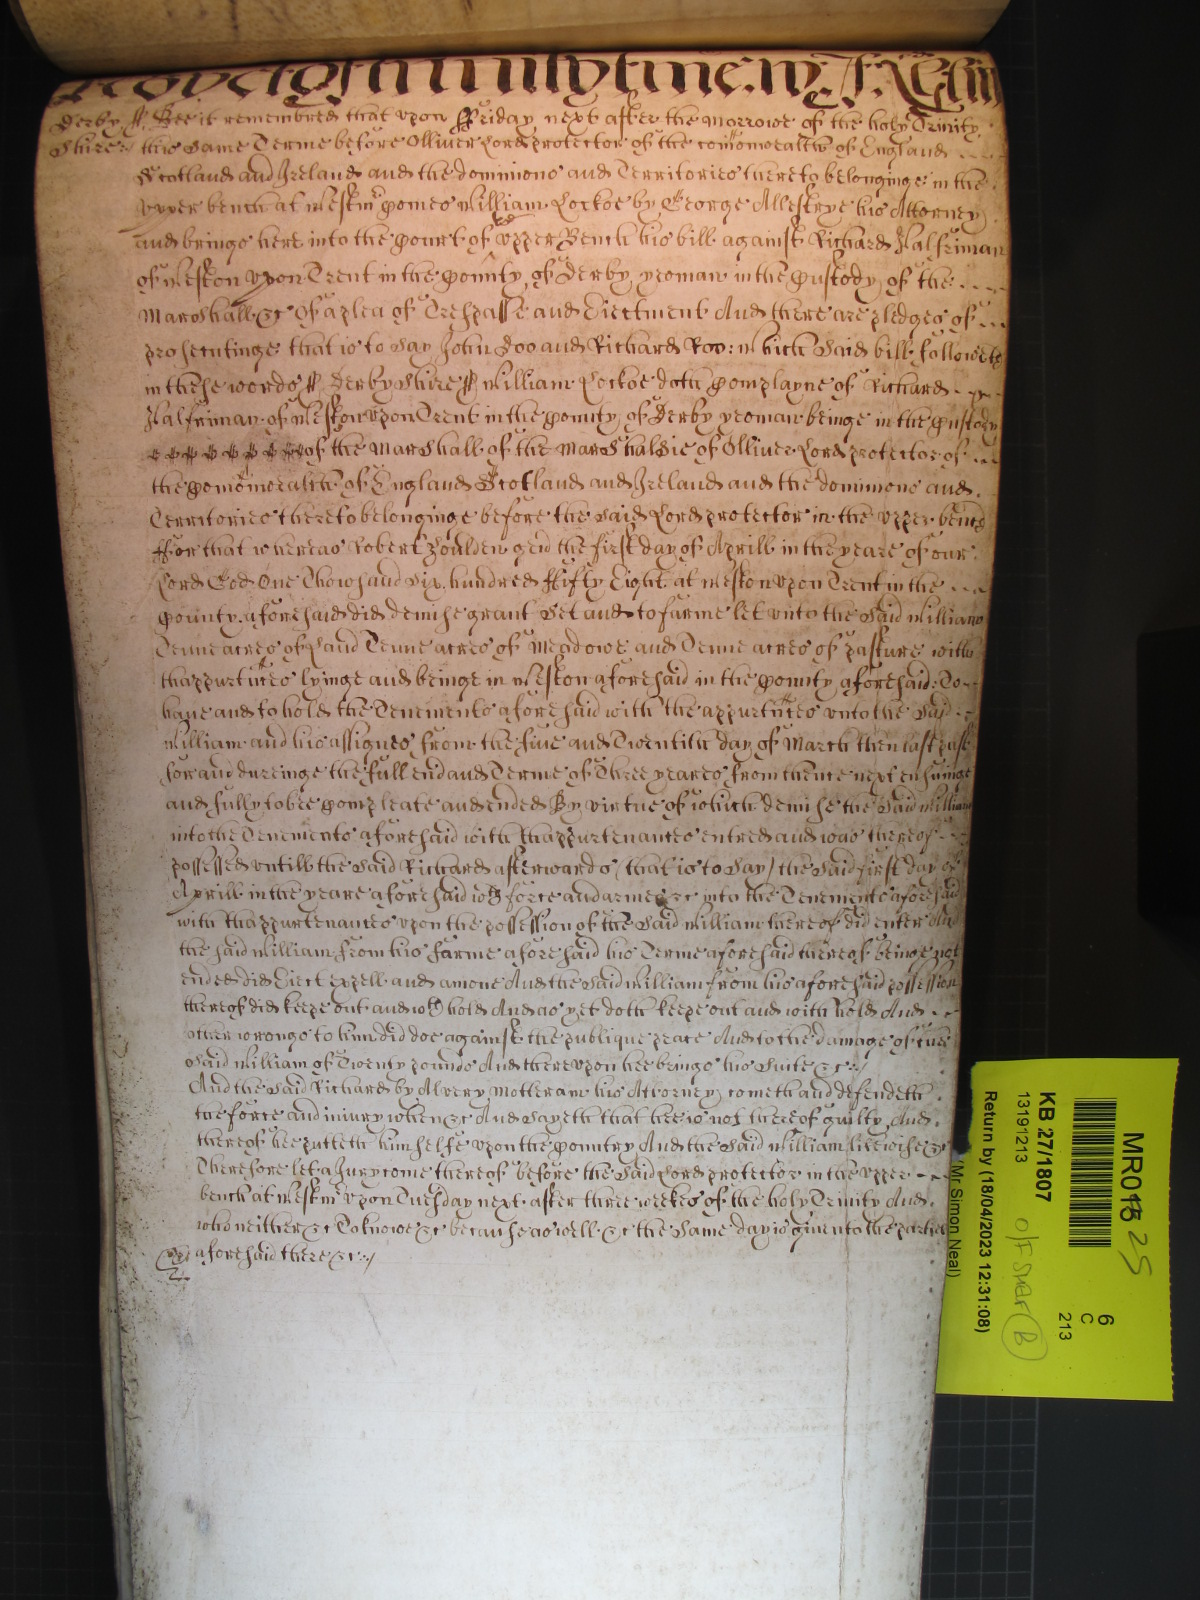 Derby ss Bee it remembred that upon Friday next after the morrowe of the holy Trinity
Shire this same Terme before Olliver Lord protector of the comonwealth of England
Scotland and Ireland and the dominions and Territories thereto belonginge in the
upper bench at Westmr Comes William Lockoe by George Allestrye his Attorney
and brings here into the Court of upper Bench his bill against Richard Halfriman
of Weston upon Trent in the County of Derby yeoman in the Custody of the
Marshall &c Of a plea of Trespasse and Eiectment And there are pledges of
prosecutinge that is to say John Doo and Richard Roo: which said bill followeth
in these words ss Derby Shire ss William Lockoe doth Complayne of Richard
Halfriman of Weston upon Trent in the County of Derby yeoman beinge in the Custody
of the Marshall of the Marshalsie of Olliver Lord protector of
the Comonwealth of England Scotland and Ireland and the dominions and
Territories thereto belonginge before the said Lord protector in the upper bench
ffor that whereas Robert gen the first day of Aprill in the yeare of our
Lord God One Thowsand Six hundred ffifty Eight at Weston upon Trent in the
County aforesaid did demise grant Set and to farme let unto the said William
Tenne acres of Land Tenne acres of Meadowe and Tenne acres of pasture with
thappurtnces lyinge and beinge in Weston aforesaid in the County aforesaid: To
have and to hold the Tenements aforesaid with the appurtnces unto the said
William and his assignes from the five and Twentith day of March then last past
for and duringe the full end and Terme of Three yeares from thence next ensuinge
and fully to bee Compleate and ended By virtue of which demise the said William
into the Tenements aforesaid with thappurtenances entred and was thereof
possessed untill the said Richard afterwards (that is to say) the said first day of
Aprill in the yeare aforesaid wth force and armes &c into the Tenements aforesaid
with thappurtenances upon the possession of the said William thereof did enter And
the said William from his farme aforesaid his Terme aforesaid thereof beinge not
ended did Eiect expell and amove And the said William from his aforesaid possession
thereof did keepe out and wth hold And as yet doth keepe out and with hold And
other wrongs to him did doe against the publique peace And to the damage of the
said William of Twenty pounds And thereupon hee brings his Suite &c
And the said Richard by Alvery Motteram his Attorney cometh and defendeth
the force and iniury when &c And sayeth that hee is not thereof guilty And
thereof hee putteth himselfe upon the Country And the said William likewise &c
Therefore let a Jury come thereof before the said Lord protector in the upper
bench at Westmr upon Tuesday next after three weekes of the holy Trinity And
who neither &c To knowe &c because as well &c the same day is given to the parties
aforesaid there &c
MR018 25
KB 27/1807
13191213
Return by (18/04/2023 12:31:08)
(Mr Simon Neal)
6
C
213
B